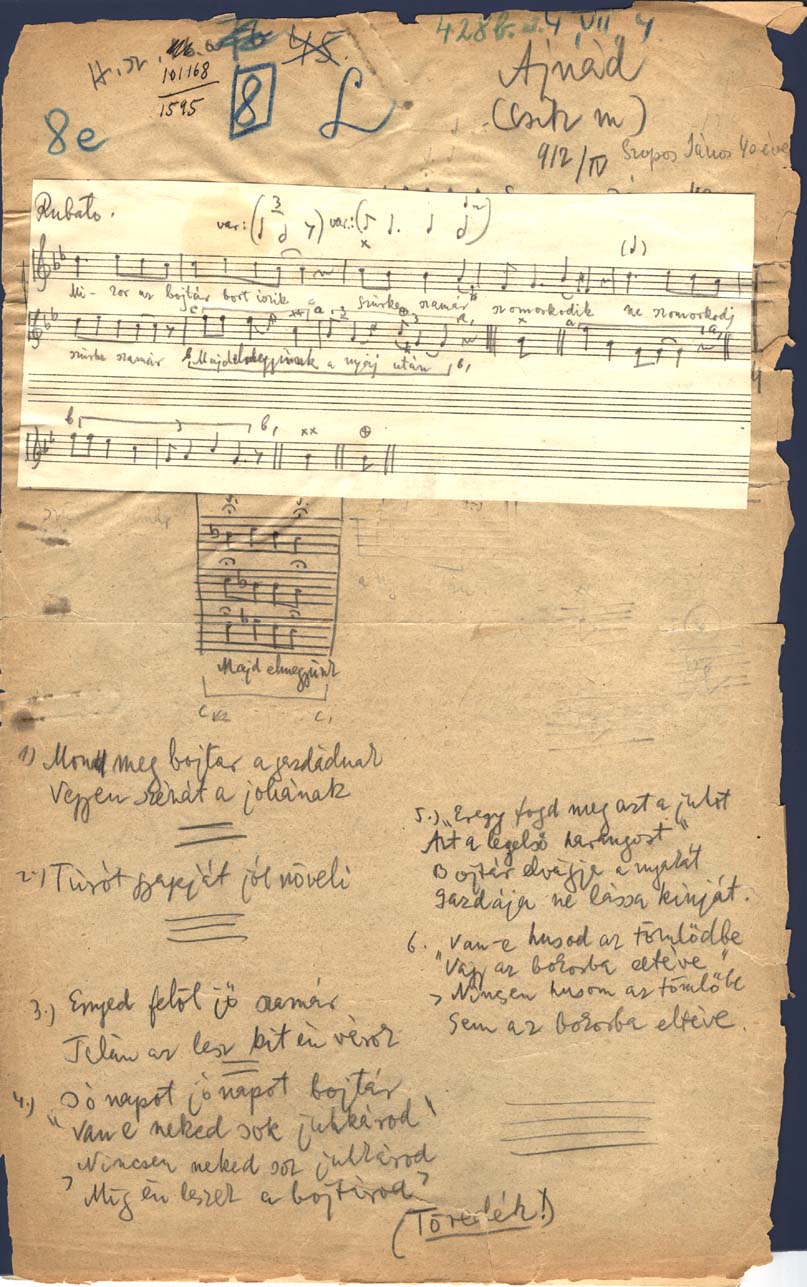 428b.
VII 4
H. sz.
45.
101168
1595
8
L
8e
Ajnád
(Csík m)
912/IV Szopos János 40 éve
Rubato.
var: var:
Mi-kor az bojtár bort iszik Szürke szamár szomorkodik ne szomorkodj
szürke szamár Majd elmegyünk a nyáj után
Majd elmegyünk
1) Mond meg bojtar a gazdádnak
Vegyen szénát a johának
2.) Túrót gyapját jól növeli
3.) Enyed felöl jö szamár
Talán az lesz kit én várok
4.) Jó napot jó napot bojtár
"Van e neked sok juhkárod"
Nincsen neked sok juhkárod
Mig én leszek a bojtárod
5.) "Eregy fogd meg azt a juhot
Azt a legelső harangost"
Bojtár elvágja a nyakát
Gazdája ne lássa kinját.
6. "Van-e husod az tömlödbe
Vagy az bokorba eltéve"
Nincsen husom az tömlőbe
Sem az bokorba eltéve.
(Töredék!)